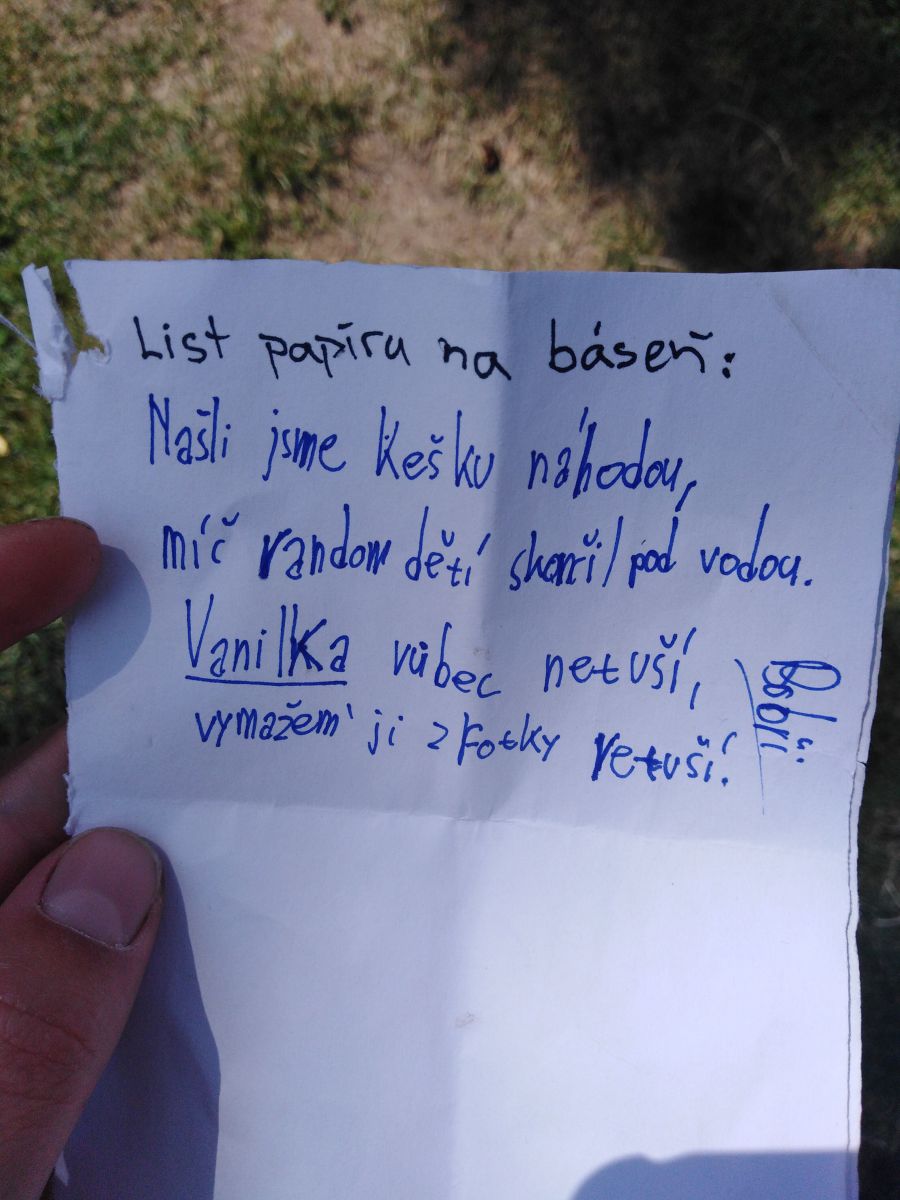 List papíru na báseň:
Našli jsme kešku náhodou,
míč random dětí skončil pod vodou.
Vanilka vůbec netuší,
vymažem' ji z fotky retuší!
Bobři.